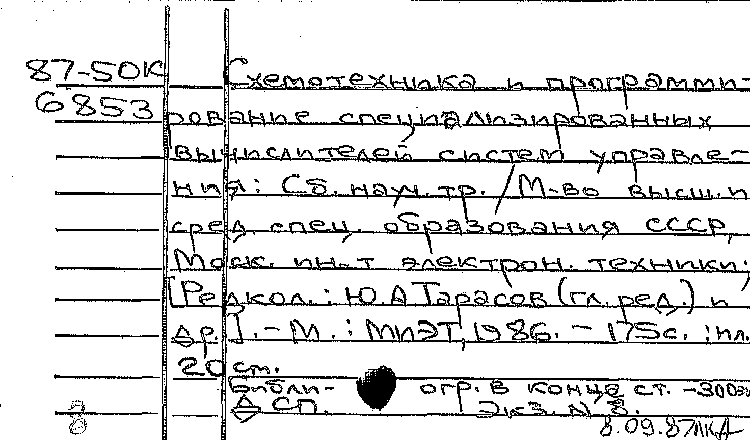 87-50К Схемотехника и программи-
6853 рование специализированных
вычислителей систем управле-
ния: Сб. науч. тр. / М-во высш. и
сред. спец. образования СССР,
Моск. ин-т электрон. техники;
[Редкол.: Ю.А Тарасов (гл. ред.) и
др.]. - М.: МИЭТ, 1986. - 175с. : ил.
20 см.
Библи- огр. в конце ст. - 300 экз
Δ СП. Экз. N 8.
8 8.09.87